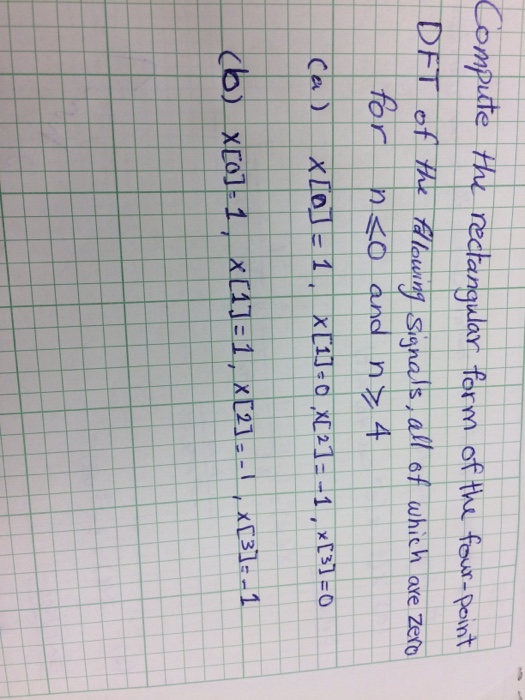 Compute the rectangular form of the four-point
DFT of the following signals, all of which are zero
for n≤0 and n≥4
(a) x[0]=1, x[1]=0, x[2]=-1, x[3]=0
(b) x[0]=1, x[1]=1, x[2]=-1, x[3]=-1